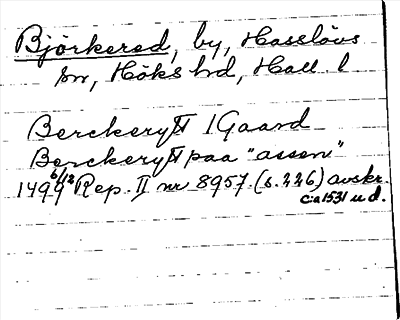 Björkered, by, Hasslövs
sn, Höks hd, Hall. l
Berckerytt 1 Gaard
Berckerytt paa "assen"
1499 6/12 Rep. II nr 8957. (s. 226) avskr.
ca 1531 u d.